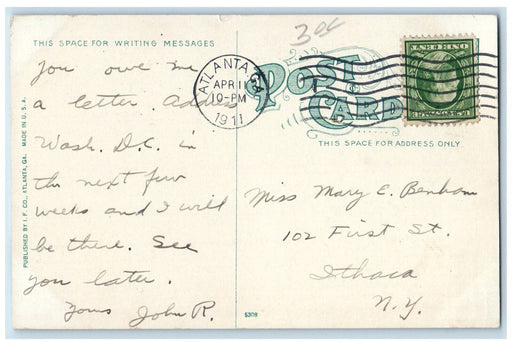 30¢
THIS SPACE FOR WRITING MESSAGES
POST
CARD
ATLANTA, GA.
APR 11
10-PM
1911
THIS SPACE FOR ADDRESS ONLY
You owe me
a letter. Address
Wash. D.C. in
the next few
weeks and I will
be there. See
you later.
Yours John R.
Miss Mary E. Benham
102 First St.
Ithaca
N.Y.
PUBLISHED BY I. F. CO., ATLANTA, GA. MADE IN U.S.A.
S308